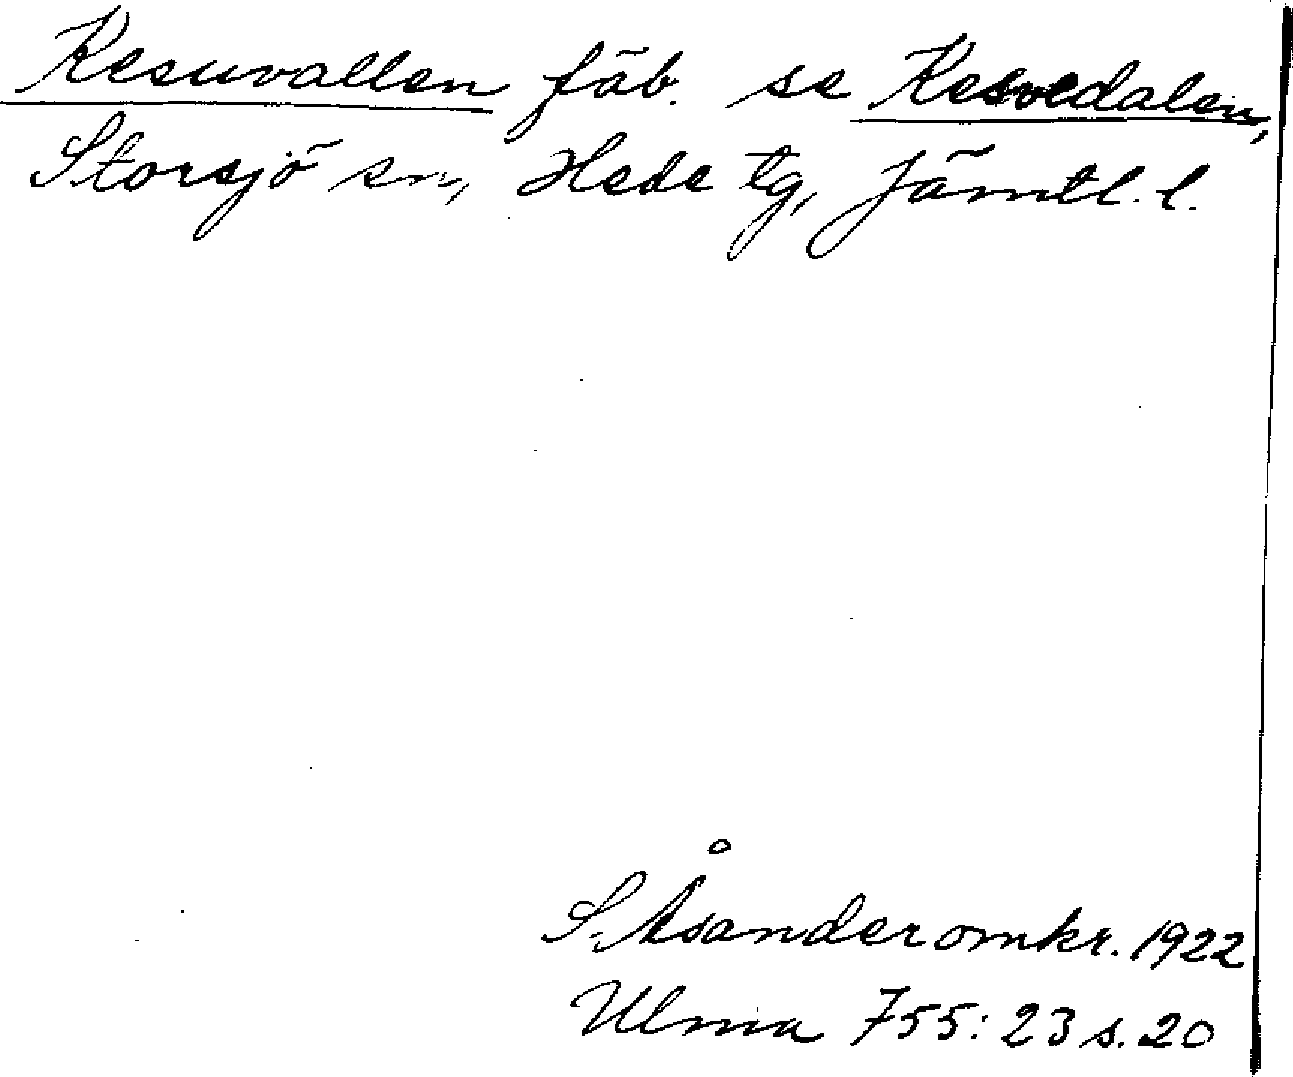 Kesuvallen fäb. se Kesvedalen,
Storsjö sn, Hede tg, Jämtl. l.
S. Åsander omkr. 1922
Ulma 755:23 s. 20